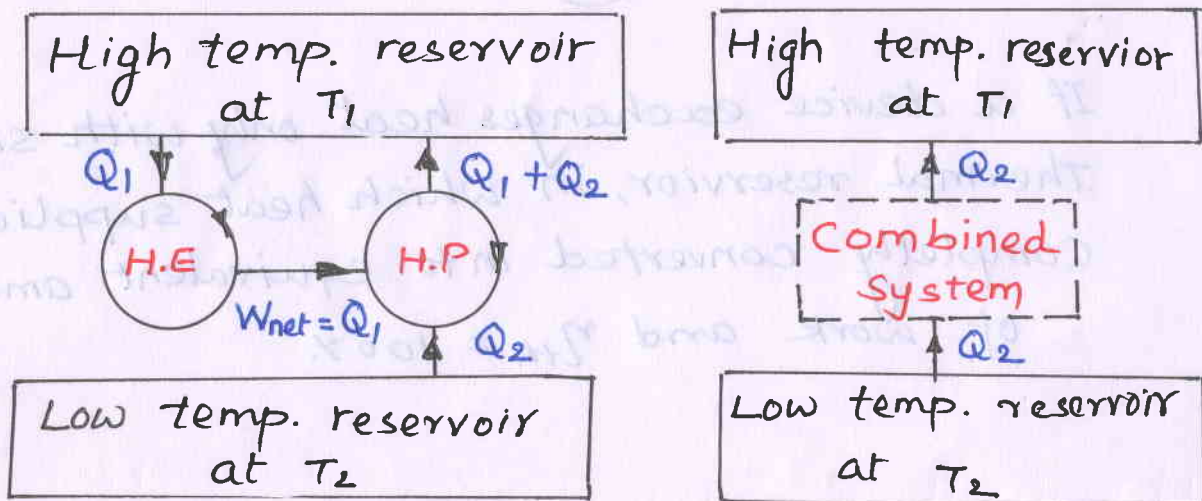 High temp. reservoir
at T₁
Q₁
Q₁ + Q₂
H.E
H.P
Wnet = Q₁
Q₂
Low temp. reservoir
at T₂
High temp. reservior
at T₁
Q₂
Combined
System
Q₂
Low temp. reservoir
at T₂